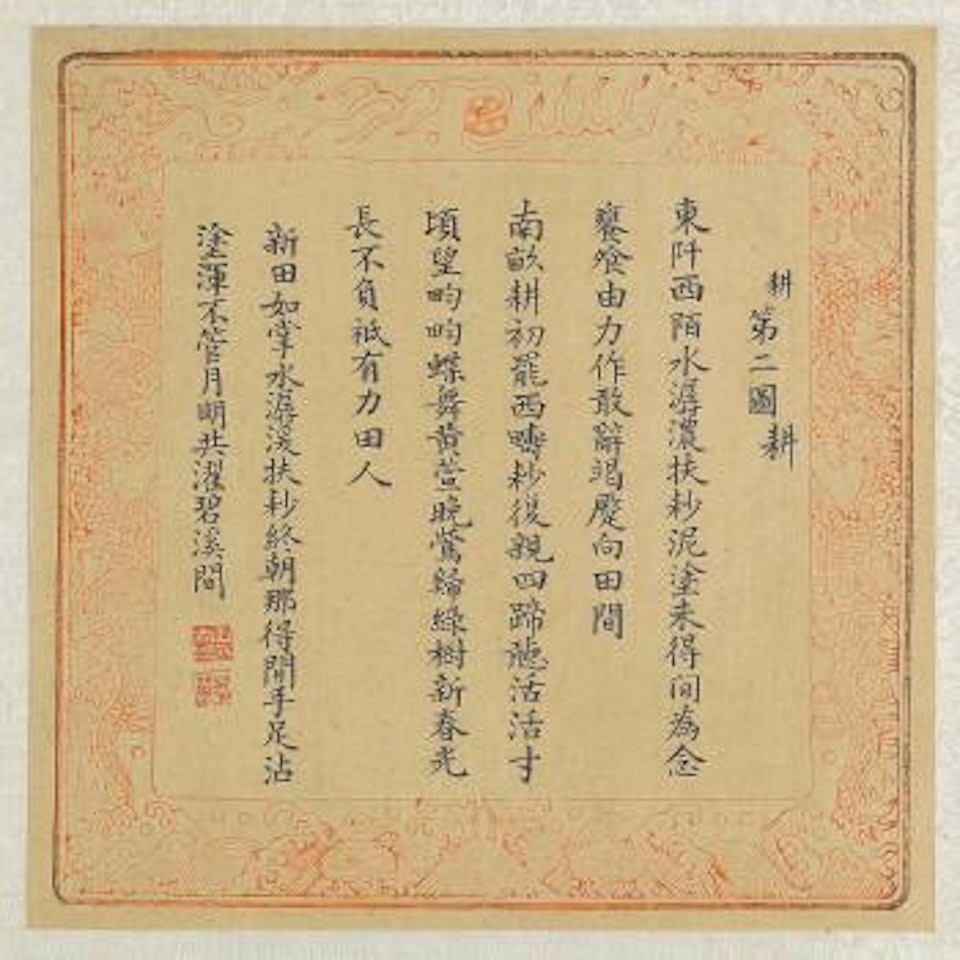 耕第二圖 耕
東阡西陌水潺濃扶耖泥塗未得间為念
饔飧由力作敢辭竭蹷向田間
南畝耕初罷西疇耖後親四蹄聽活活寸
頃望畇畇蝶舞黄萱晚鶯歸綠樹新春光
長不負祗有力田人
新田如掌水潺湲扶耖終朝那得閒手足沾
塗渾不管月明共濯碧溪間